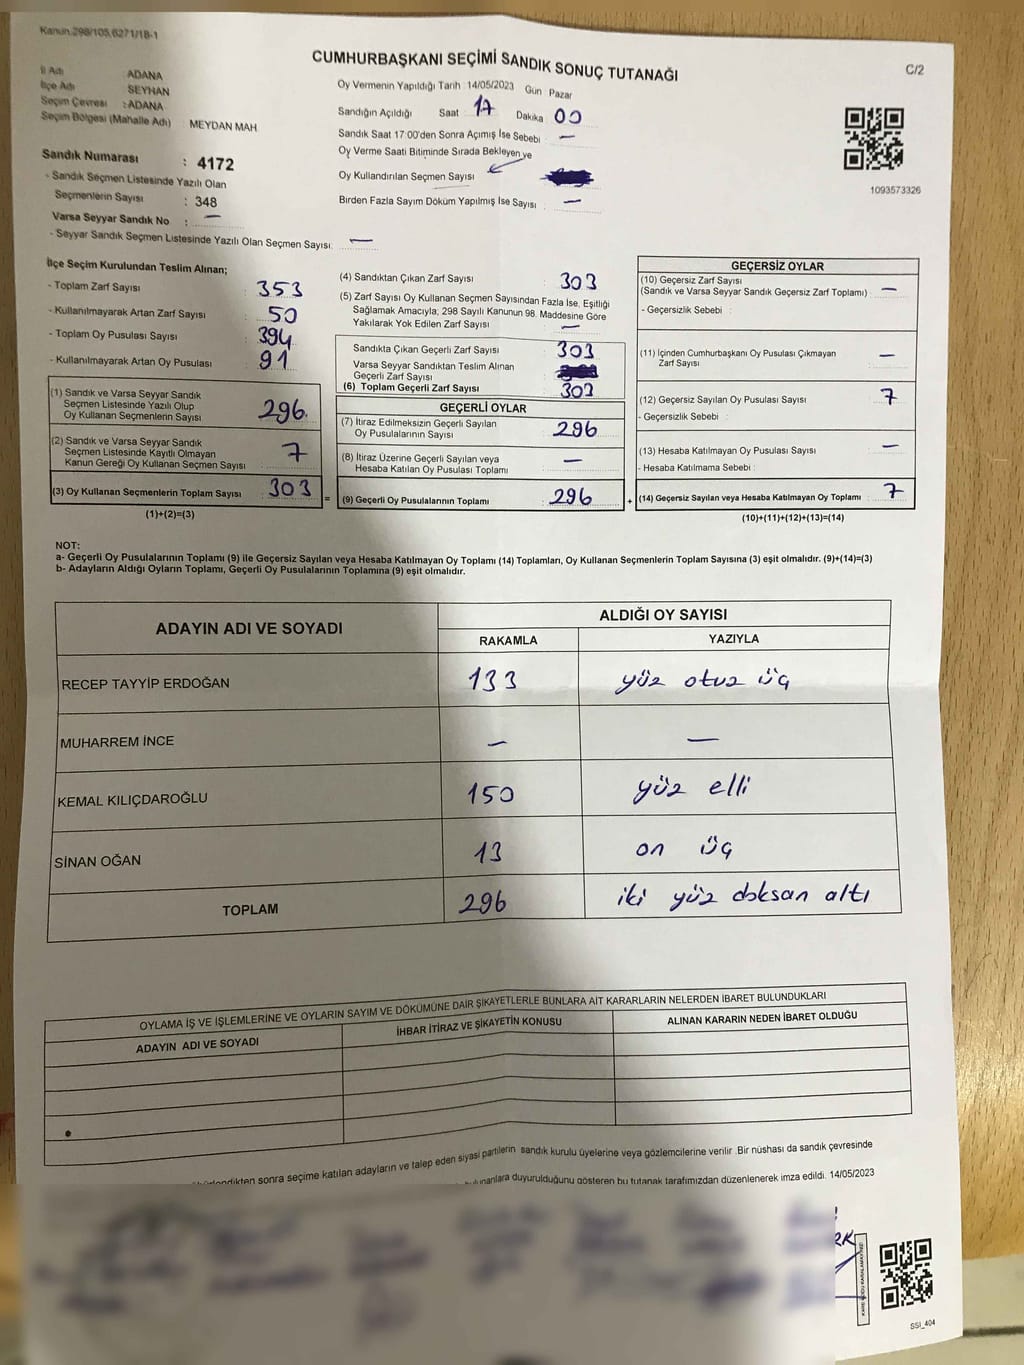 Kanun.298/105,6271/18-1
CUMHURBAŞKANI SEÇİMİ SANDIK SONUÇ TUTANAĞI
C/2
İl Adı ADANA
İlçe Adı SEYHAN
Seçim Çevresi : ADANA
Seçim Bölgesi (Mahalle Adı) MEYDAN MAH
Sandık Numarası : 4172
- Sandık Seçmen Listesinde Yazılı Olan
Seçmenlerin Sayısı : 348
Varsa Seyyar Sandık No : —
- Seyyar Sandık Seçmen Listesinde Yazılı Olan Seçmen Sayısı: —
Oy Vermenin Yapıldığı Tarih : 14/05/2023 Gün Pazar
Sandığın Açıldığı Saat 17 Dakika 00
Sandık Saat 17:00'den Sonra Açımış İse Sebebi : —
Oy Verme Saati Bitiminde Sırada Bekleyen ve
Oy Kullandırılan Seçmen Sayısı
Birden Fazla Sayım Döküm Yapılmış İse Sayısı : —
1093573326
İlçe Seçim Kurulundan Teslim Alınan;
- Toplam Zarf Sayısı : 353
- Kullanılmayarak Artan Zarf Sayısı : 50
- Toplam Oy Pusulası Sayısı : 394
- Kullanılmayarak Artan Oy Pusulası : 91
(1) Sandık ve Varsa Seyyar Sandık
Seçmen Listesinde Yazılı Olup
Oy Kullanan Seçmenlerin Sayısı : 296
(2) Sandık ve Varsa Seyyar Sandık
Seçmen Listesinde Kayıtlı Olmayan
Kanun Gereği Oy Kullanan Seçmen Sayısı : 7
(3) Oy Kullanan Seçmenlerin Toplam Sayısı : 303 =
(1)+(2)=(3)
(4) Sandıktan Çıkan Zarf Sayısı : 303
(5) Zarf Sayısı Oy Kullanan Seçmen Sayısından Fazla İse, Eşitliği
Sağlamak Amacıyla; 298 Sayılı Kanunun 98. Maddesine Göre
Yakılarak Yok Edilen Zarf Sayısı : —
Sandıkta Çıkan Geçerli Zarf Sayısı : 303
Varsa Seyyar Sandıktan Teslim Alınan
Geçerli Zarf Sayısı
(6) Toplam Geçerli Zarf Sayısı : 303
GEÇERLİ OYLAR
(7) İtiraz Edilmeksizin Geçerli Sayılan
Oy Pusulalarının Sayısı : 296
(8) İtiraz Üzerine Geçerli Sayılan veya
Hesaba Katılan Oy Pusulası Toplamı : —
(9) Geçerli Oy Pusulalarının Toplamı : 296 +
GEÇERSİZ OYLAR
(10) Geçersiz Zarf Sayısı
(Sandık ve Varsa Seyyar Sandık Geçersiz Zarf Toplamı) : —
- Geçersizlik Sebebi :
(11) İçinden Cumhurbaşkanı Oy Pusulası Çıkmayan
Zarf Sayısı : —
(12) Geçersiz Sayılan Oy Pusulası Sayısı : 7
- Geçersizlik Sebebi :
(13) Hesaba Katılmayan Oy Pusulası Sayısı : —
- Hesaba Katılmama Sebebi :
(14) Geçersiz Sayılan veya Hesaba Katılmayan Oy Toplamı : 7
(10)+(11)+(12)+(13)=(14)
NOT:
a- Geçerli Oy Pusulalarının Toplamı (9) ile Geçersiz Sayılan veya Hesaba Katılmayan Oy Toplamı (14) Toplamları, Oy Kullanan Seçmenlerin Toplam Sayısına (3) eşit olmalıdır. (9)+(14)=(3)
b- Adayların Aldığı Oyların Toplamı, Geçerli Oy Pusulalarının Toplamına (9) eşit olmalıdır.
ADAYIN ADI VE SOYADI ALDIĞI OY SAYISI
RAKAMLA YAZIYLA
RECEP TAYYİP ERDOĞAN 133 yüz otuz üç
MUHARREM İNCE — —
KEMAL KILIÇDAROĞLU 150 yüz elli
SİNAN OĞAN 13 on üç
TOPLAM 296 iki yüz doksan altı
OYLAMA İŞ VE İŞLEMLERİNE VE OYLARIN SAYIM VE DÖKÜMÜNE DAİR ŞİKAYETLERLE BUNLARA AİT KARARLARIN NELERDEN İBARET BULUNDUKLARI
ADAYIN ADI VE SOYADI İHBAR İTİRAZ VE ŞİKAYETİN KONUSU ALINAN KARARIN NEDEN İBARET OLDUĞU
sonra seçime katılan adayların ve talep eden siyasi partilerin sandık kurulu üyelerine veya gözlemcilerine verilir .Bir nüshası da sandık çevresinde
duyurulduğunu gösteren bu tutanak tarafımızdan düzenlenerek imza edildi. 14/05/2023
SSİ_404